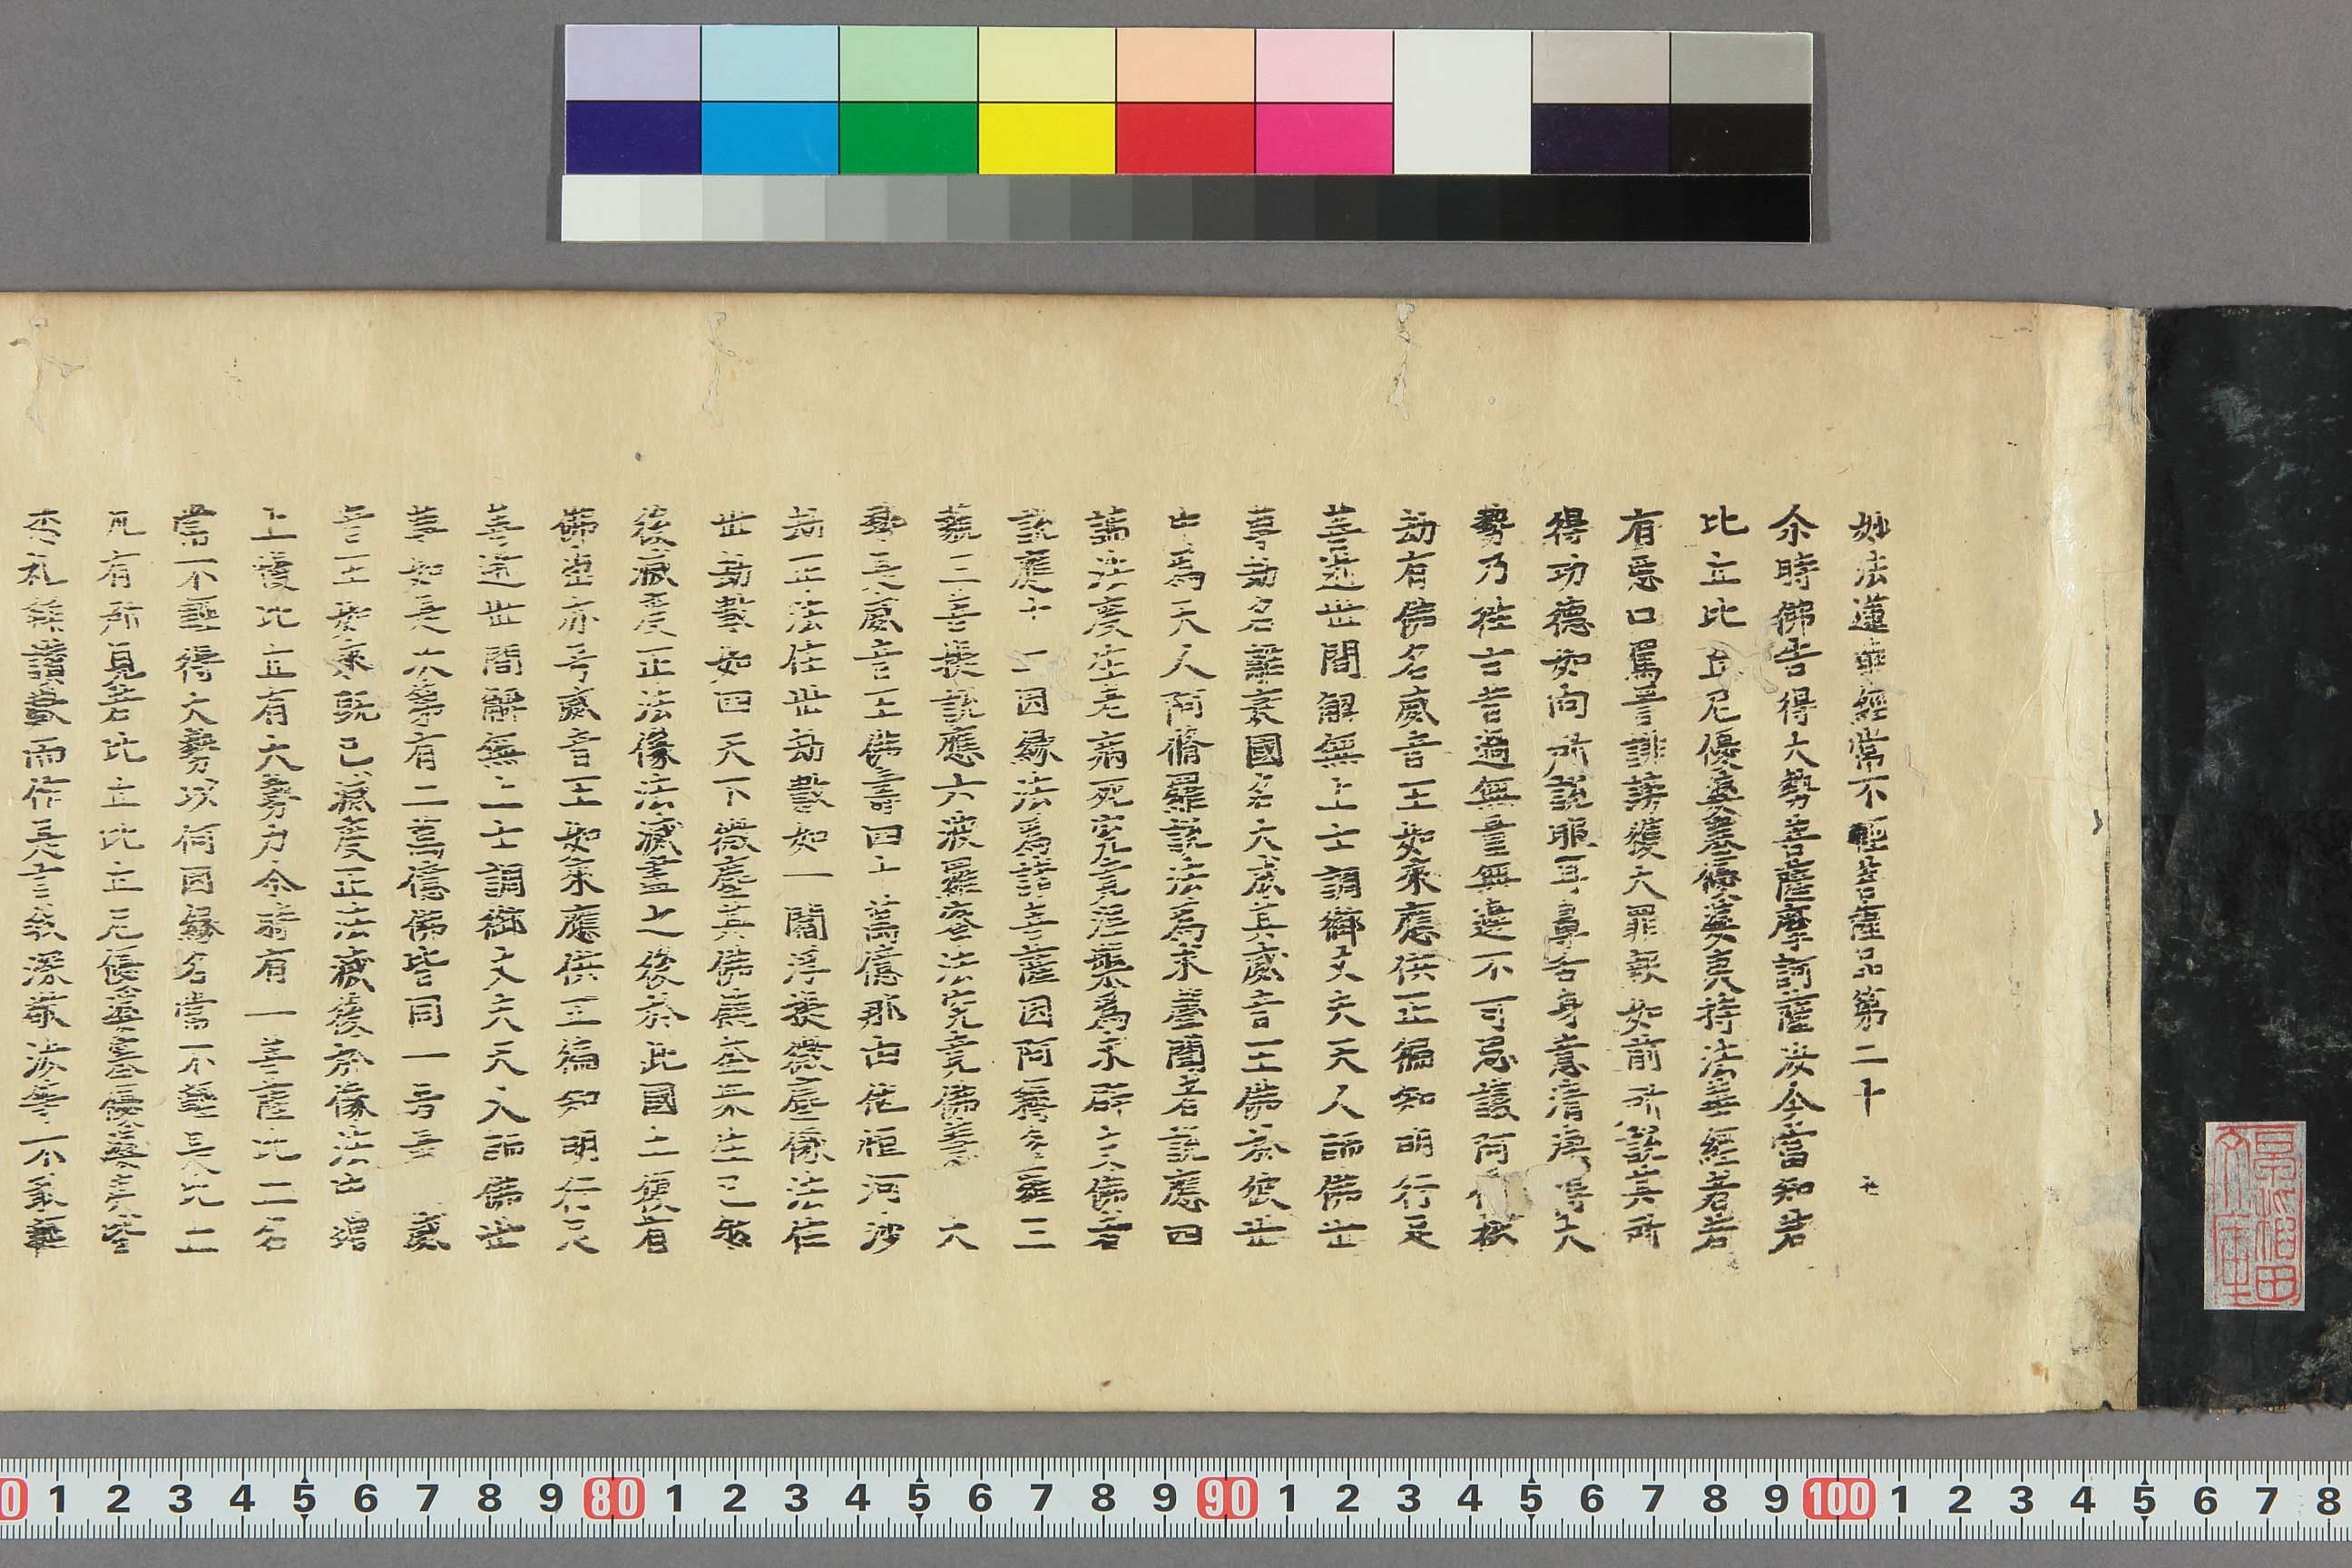 妙法蓮華經常不輕菩薩品第二十 七
尒時佛告得大勢菩薩摩訶薩汝今當知若
比丘比丘尼優婆塞優婆夷持法華經者若
有惡口罵詈誹謗獲大罪報如前所說其所
得功德如向所說眼耳鼻舌身意清淨得大
勢乃往古昔過無量無邊不可思議阿僧祇
劫有佛名威音王如來應供正徧知明行足
善逝世間解無上士調御丈夫天人師佛世
尊劫名離衰國名大成其威音王佛於彼世
中為天人阿脩羅說法為求聲聞者說應四
諦法度生老病死究竟涅槃為求辟支佛者
說應十二因緣法為諸菩薩因阿耨多羅三
藐三菩提說應六波羅蜜法究竟佛慧 大
勢是威音王佛壽四十萬億那由他恒河沙
劫正法住世劫數如一閻浮提微塵像法住
世劫數如四天下微塵其佛饒益眾生已然
後滅度正法像法滅盡之後於此國土復有
佛出亦号威音王如來應供正徧知明行足
善逝世間解無上士調御丈夫天人師佛世
尊如是次第有二萬億佛皆同一号 威
音王如來既已滅度正法滅後於像法中增
上慢比丘有大勢力尒時有一菩薩比丘名
常不輕得大勢以何因緣名常不輕是比丘
凡有所見若比丘比丘尼優婆塞優婆夷皆
悉礼拜讚歎而作是言我深敬汝等不敢輕
0 1 2 3 4 5 6 7 8 9 80 1 2 3 4 5 6 7 8 9 90 1 2 3 4 5 6 7 8 9 100 1 2 3 4 5 6 7 8